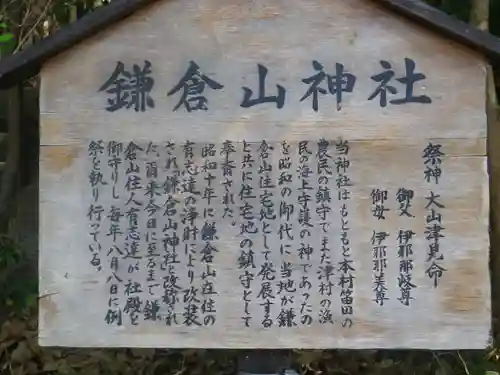 鎌倉山神社
祭神 大山津見命
御父 伊邪那岐尊
御女 伊邪那美尊
当神社はもともと本村笛田の
農民の鎮守でまた津村の漁
民の海上守護の神であったの
を昭和の御代に当地が鎌
倉山住宅地として発展する
と共に住宅地の鎮守として
奉斎された。
昭和十年に鎌倉山在住の
有志達の浄財により改装
され『鎌倉山神社』と改称され
た。爾来今日に至るまで鎌
倉山住人有志達が社殿を
御守りし毎年八月八日に例
祭を執り行っている。